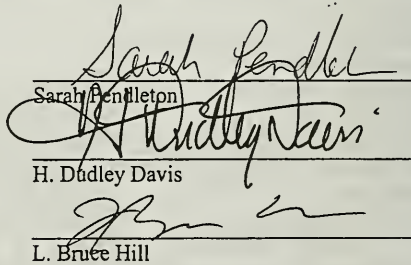 Sarah Pendleton
Sarah Pendleton
H. Dudley Davis
H. Dudley Davis
L. Bruce Hill